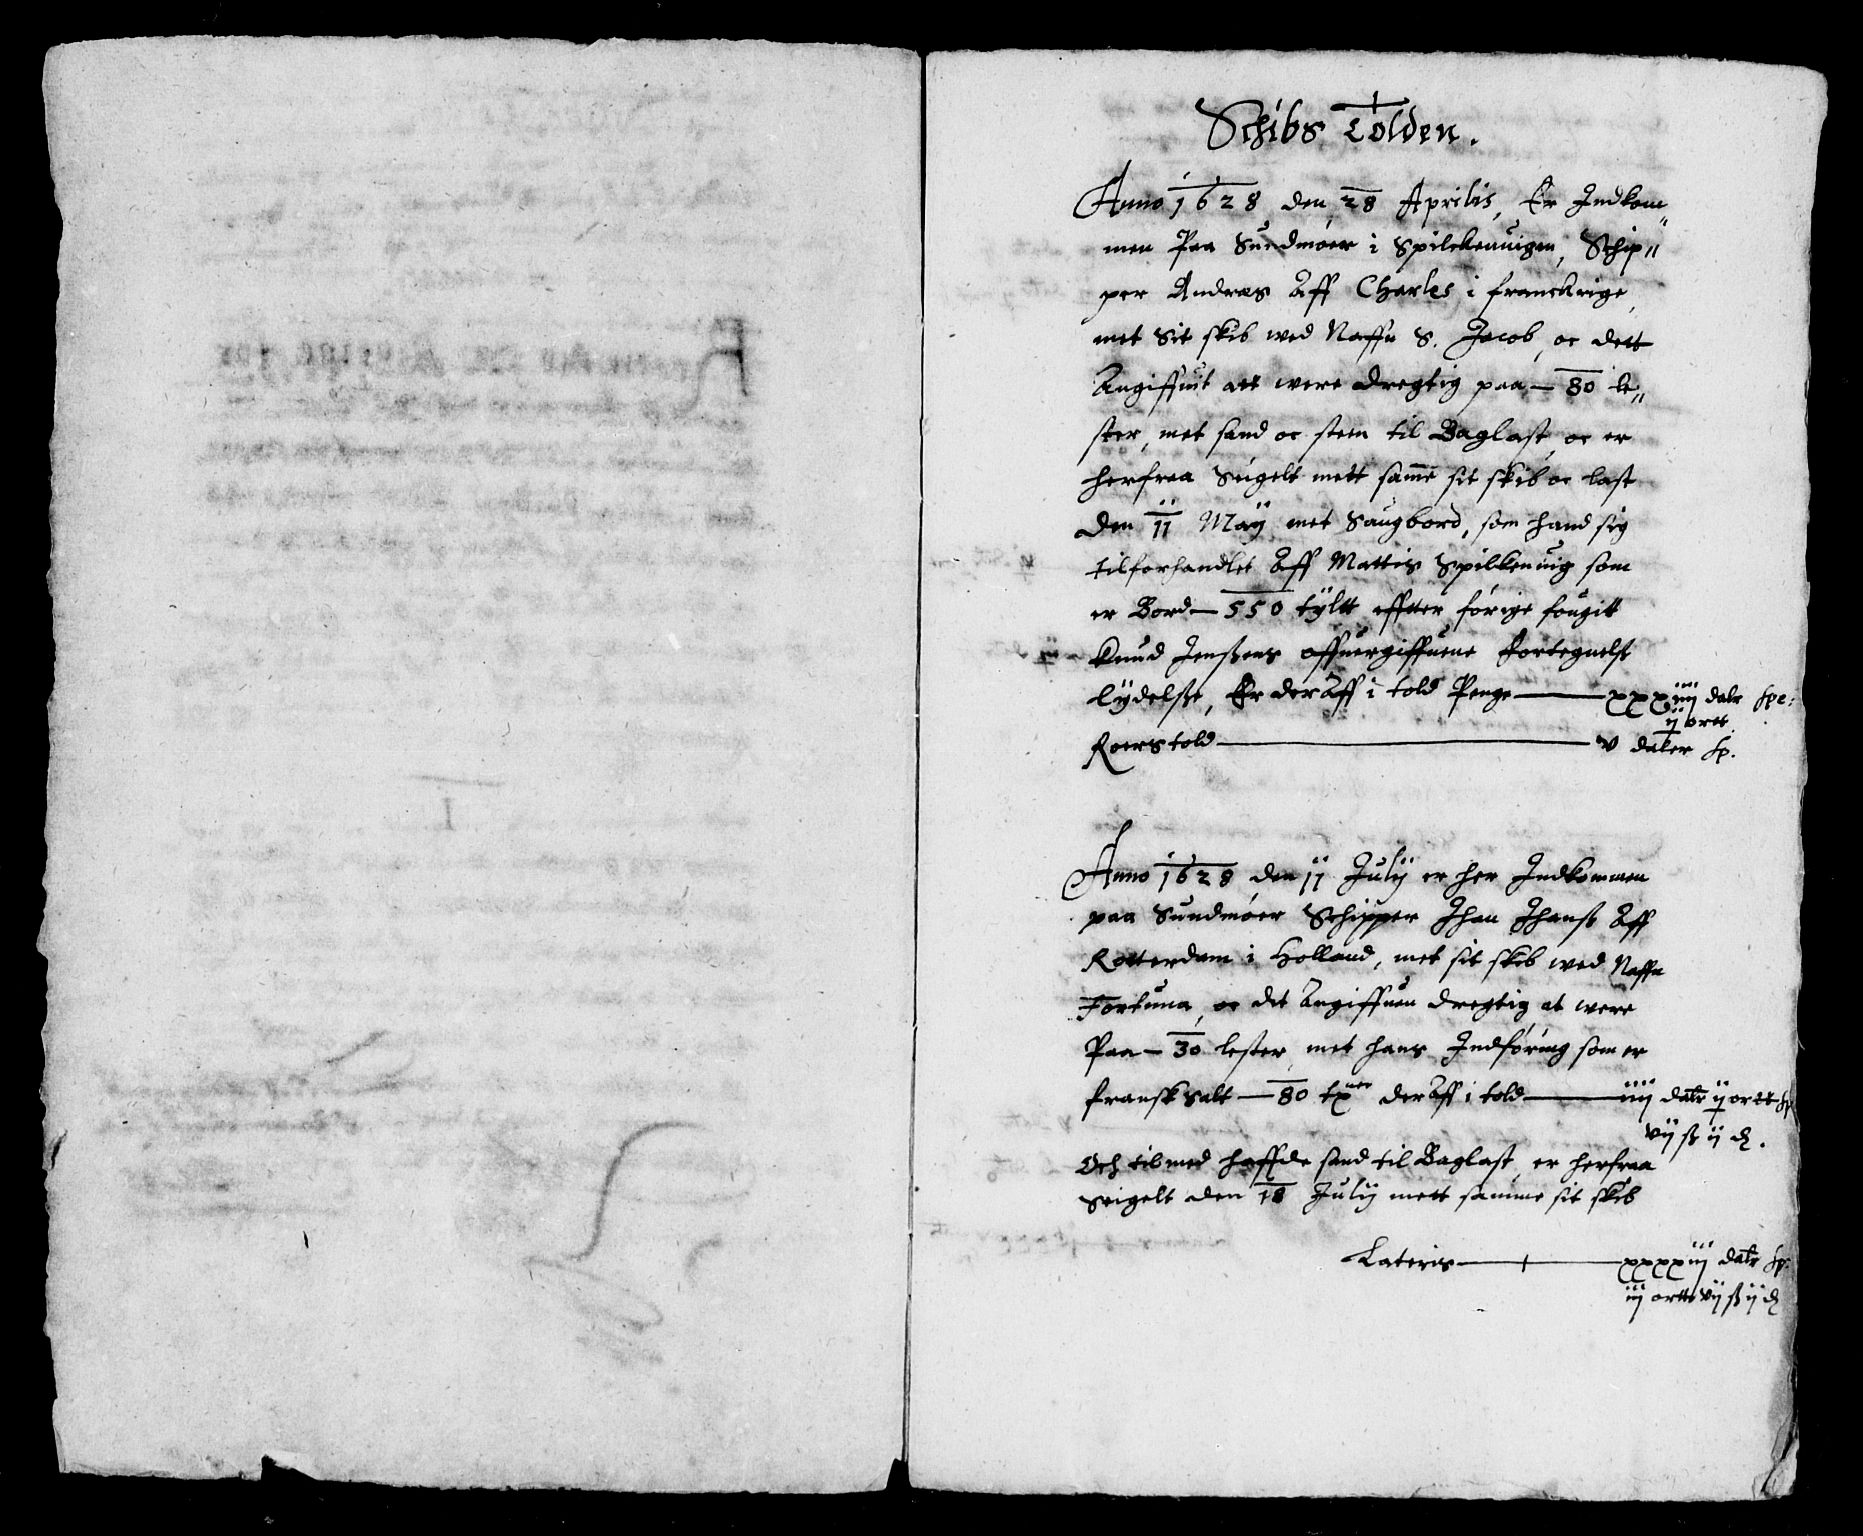 Schibs Tolden.
Anno 1628, den, 28 Aprilis, Er Indkom„
men Paa Sundmøer i Spilckenuigen, Schip„
per Andræs Aff Charles i franckrige,
met Sit skib wed Naffn S. Jacob, oc dett
Angiffuit att were dregtig paa — 80 le„
ster, met sand oc steen til Baglast, oc er
herfraa Seigelt mett samme sit skib oc last
den 11 Maij met Saugbord, som hand sig
tilforhandlet Aff Mattis Spilkenuig som
er Bord — 550 tyltt effter forige fougitt
Knud Jenßens offuergiffuene Fortegnelse
lydelße, Er der Aff i told Penge — xxxiiij dalr spe:
ij ort
Roerstold — v daler sp.
Anno 1628 den 11 Julij er her Indkommen
paa Sundmøer Schipper Jhan Jhanß Aff
Rotterdam i Holland, met sit skib wed Naffn
Fortuna, oc det Angiffuen dregtig at were
Paa — 30 lester, met hans Indføring som er
fransk salt — 80 txner der Aff i told — iiij dalr ij ortt sp
vij ß ij d.
Och tilmed haffde sand til Baglast, er herfraa
Seigelt den 18 Julij mett samme sit skib
Lateris — xxxxiij dalr sp.
iij ortt vij ß ij d